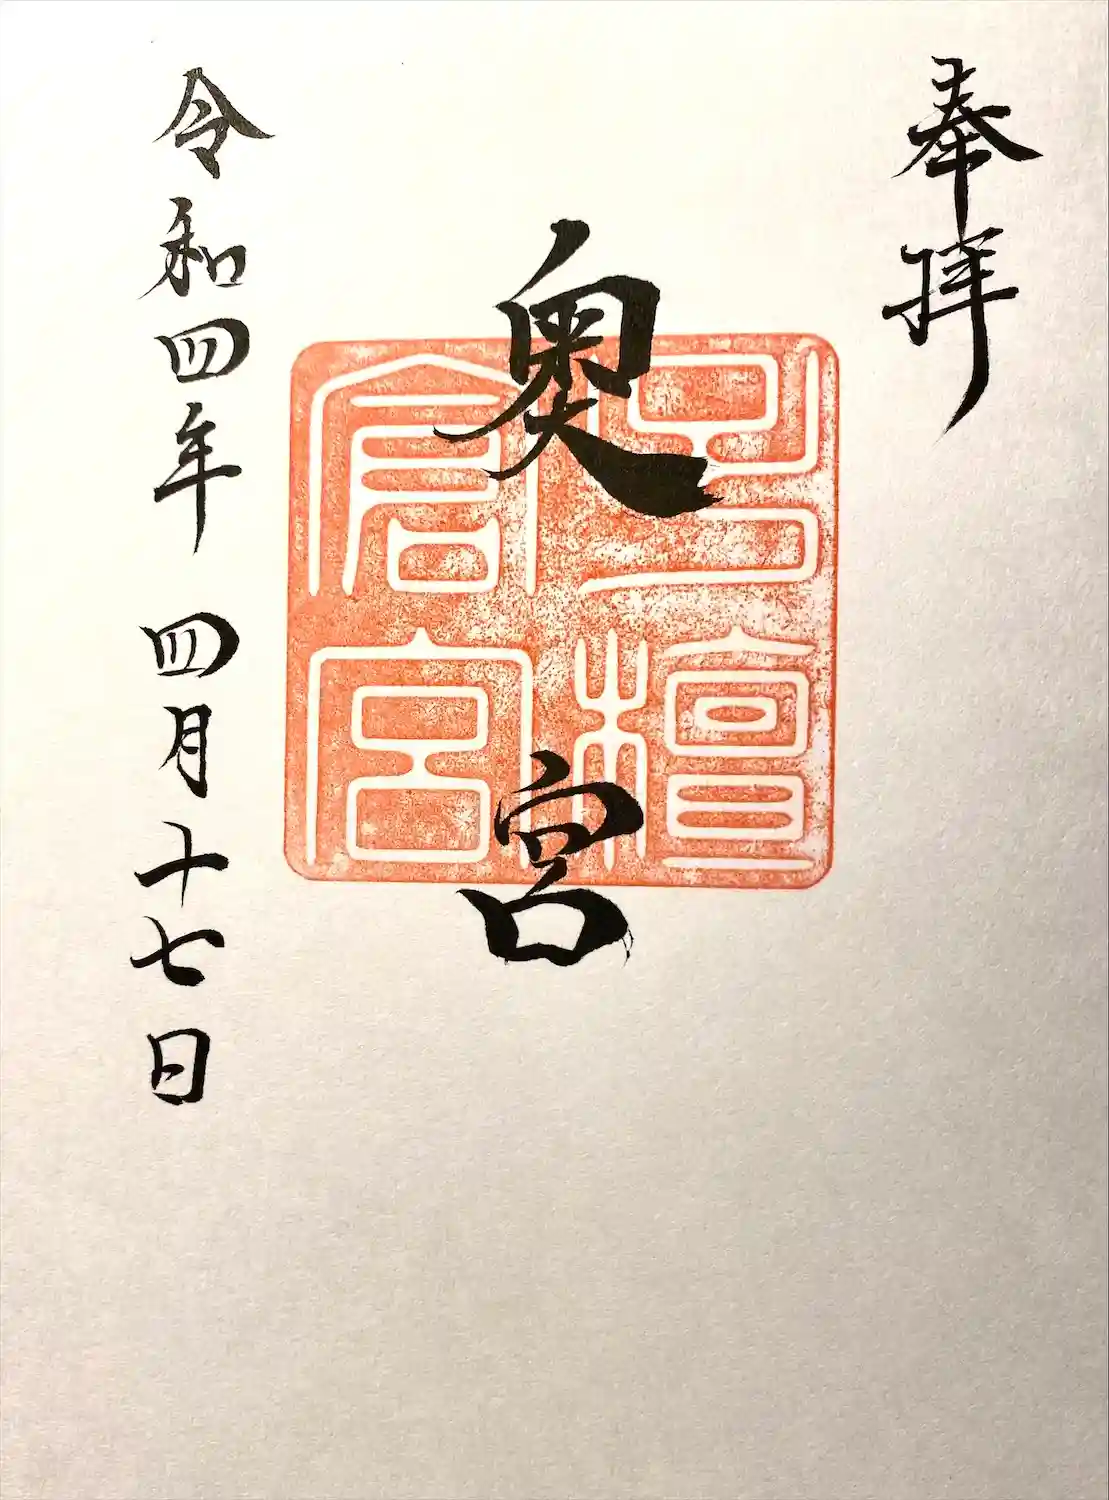 奉拝
奥宮
弓檀倉宮
令和四年 四月十七日